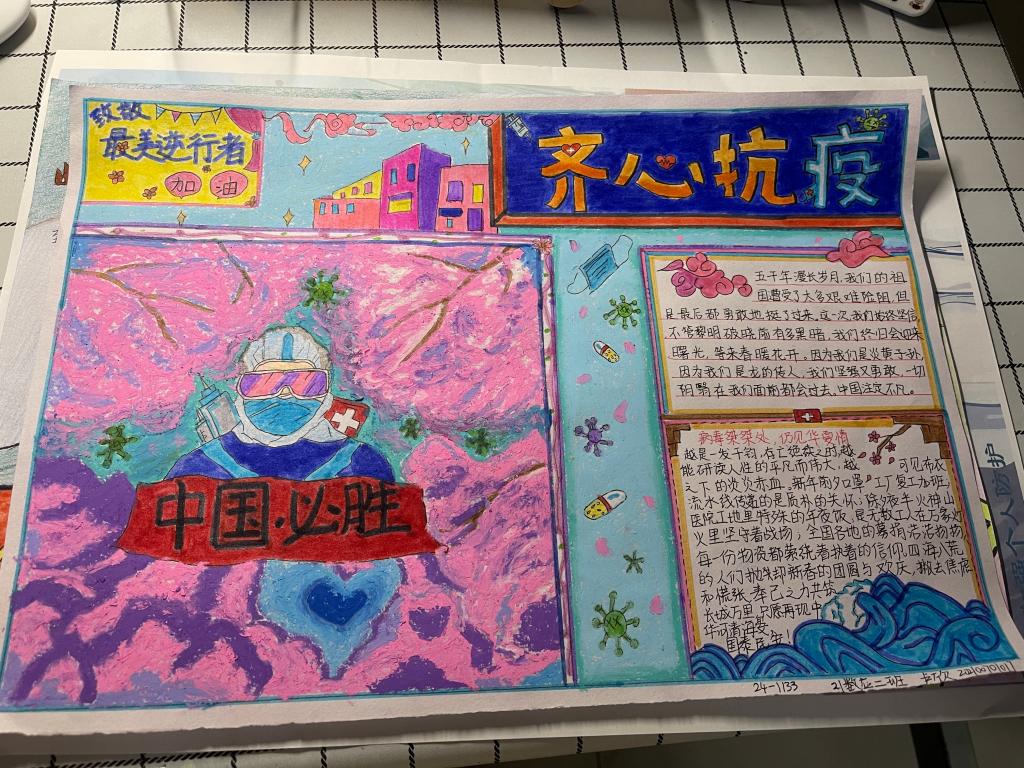 致敬
最美逆行者
加油
齐心抗疫
中国·必胜
五千年漫长岁月,我们的祖
国曹受了太多艰难险阻,但
是最后都勇敢地挺了过来,这一次,我们始终坚信
不管黎明破晓前有多黑暗,我们终归会迎来
曙光,等来春暖花开。因为我们是炎黄子孙,
因为我们是龙的传人,我们坚强又勇敢,一切
阴翳在我们面前都会过去。中国注定不凡。
病毒桀桀处,仿见华夏情
越是一发千钧,存亡绝续之时,越
能研读人性的平凡而伟大,越可见布衣
之下的炎炎赤血。新年前夕口罩工厂复工加班,
流水线传递的是质朴的关怀;除夕夜半火神山
医院工地里特殊的年夜饭,是无数工人在万家灯
火里坚守着战场;全国各地的募捐浩浩汤汤
每一份物资都萦绕着执着的信仰。四海八荒
的人们抛却却新春的团圆与欢庆,撇去焦虑
和慌张,奉己之力共筑
长城万里,只愿再现中
华河清海晏
国泰民安!
24-1133
21数应二班